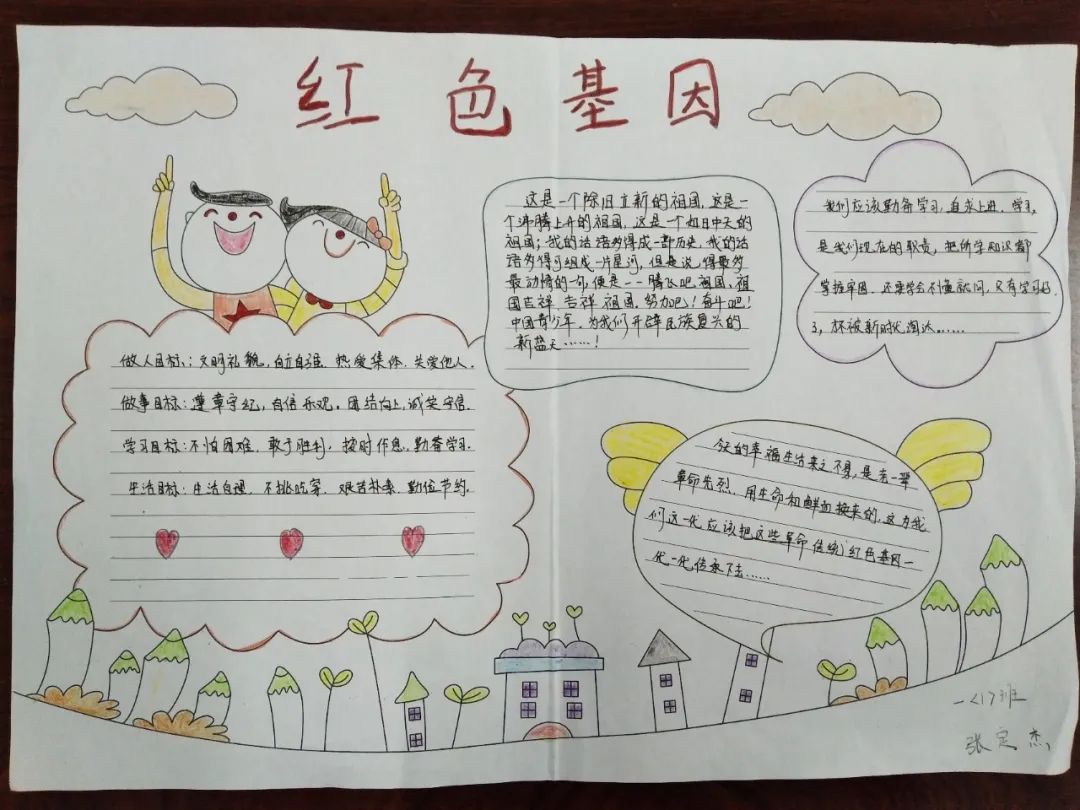 红色基因
这是一个除旧立新的祖国,这是一
个沸腾上升的祖国,这是一个如日中天的
祖国;我的话语多得成一部历史,我的话
语多得可组成一片星河,但是说得最多
最动情的一句便是——腾飞吧祖国,祖
国吉祥,吉祥祖国,努力吧!奋斗吧!
中国青少年,为我们开辟民族复兴的
新蓝天……!
我们应该勤奋学习,追求上进,学习,
是我们现在的职责,把所学知识都
掌握牢固,还要学会不懂就问,只有学习好
了,不被新时代淘汰……
做人目标:文明礼貌,自立自强,热爱集体,关爱他人.
做事目标:遵章守纪,自信乐观,团结向上,诚笑守信.
学习目标:不怕困难,敢于胜利,按时作息,勤奋学习.
生活目标:生活自理,不挑吃穿,艰苦朴素,勤俭节约.
今天的幸福生活来之不易,是老一辈
革命先烈,用生命和鲜血换来的,这为我
们这一代应该把这些革命传统,红色基因一
代一代传承下去……
一〈1〉班
张定杰